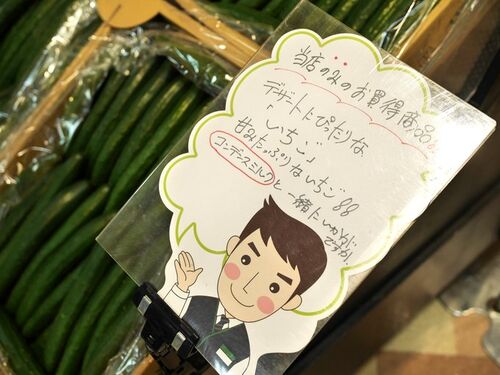 当店のみのお買得商品
デザートにぴったりな
「いちご」
甘みたっぷりないちごと
コンデンスミルクと一緒にいかがですか。